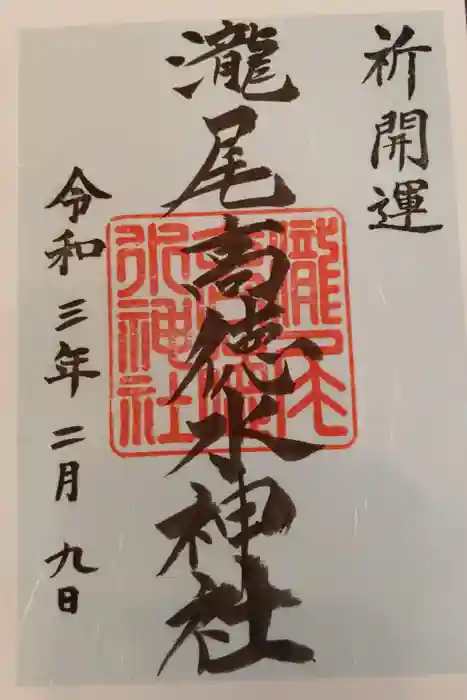 祈開運
瀧尾高徳水神社
瀧尾高徳水神社
令和三年二月九日